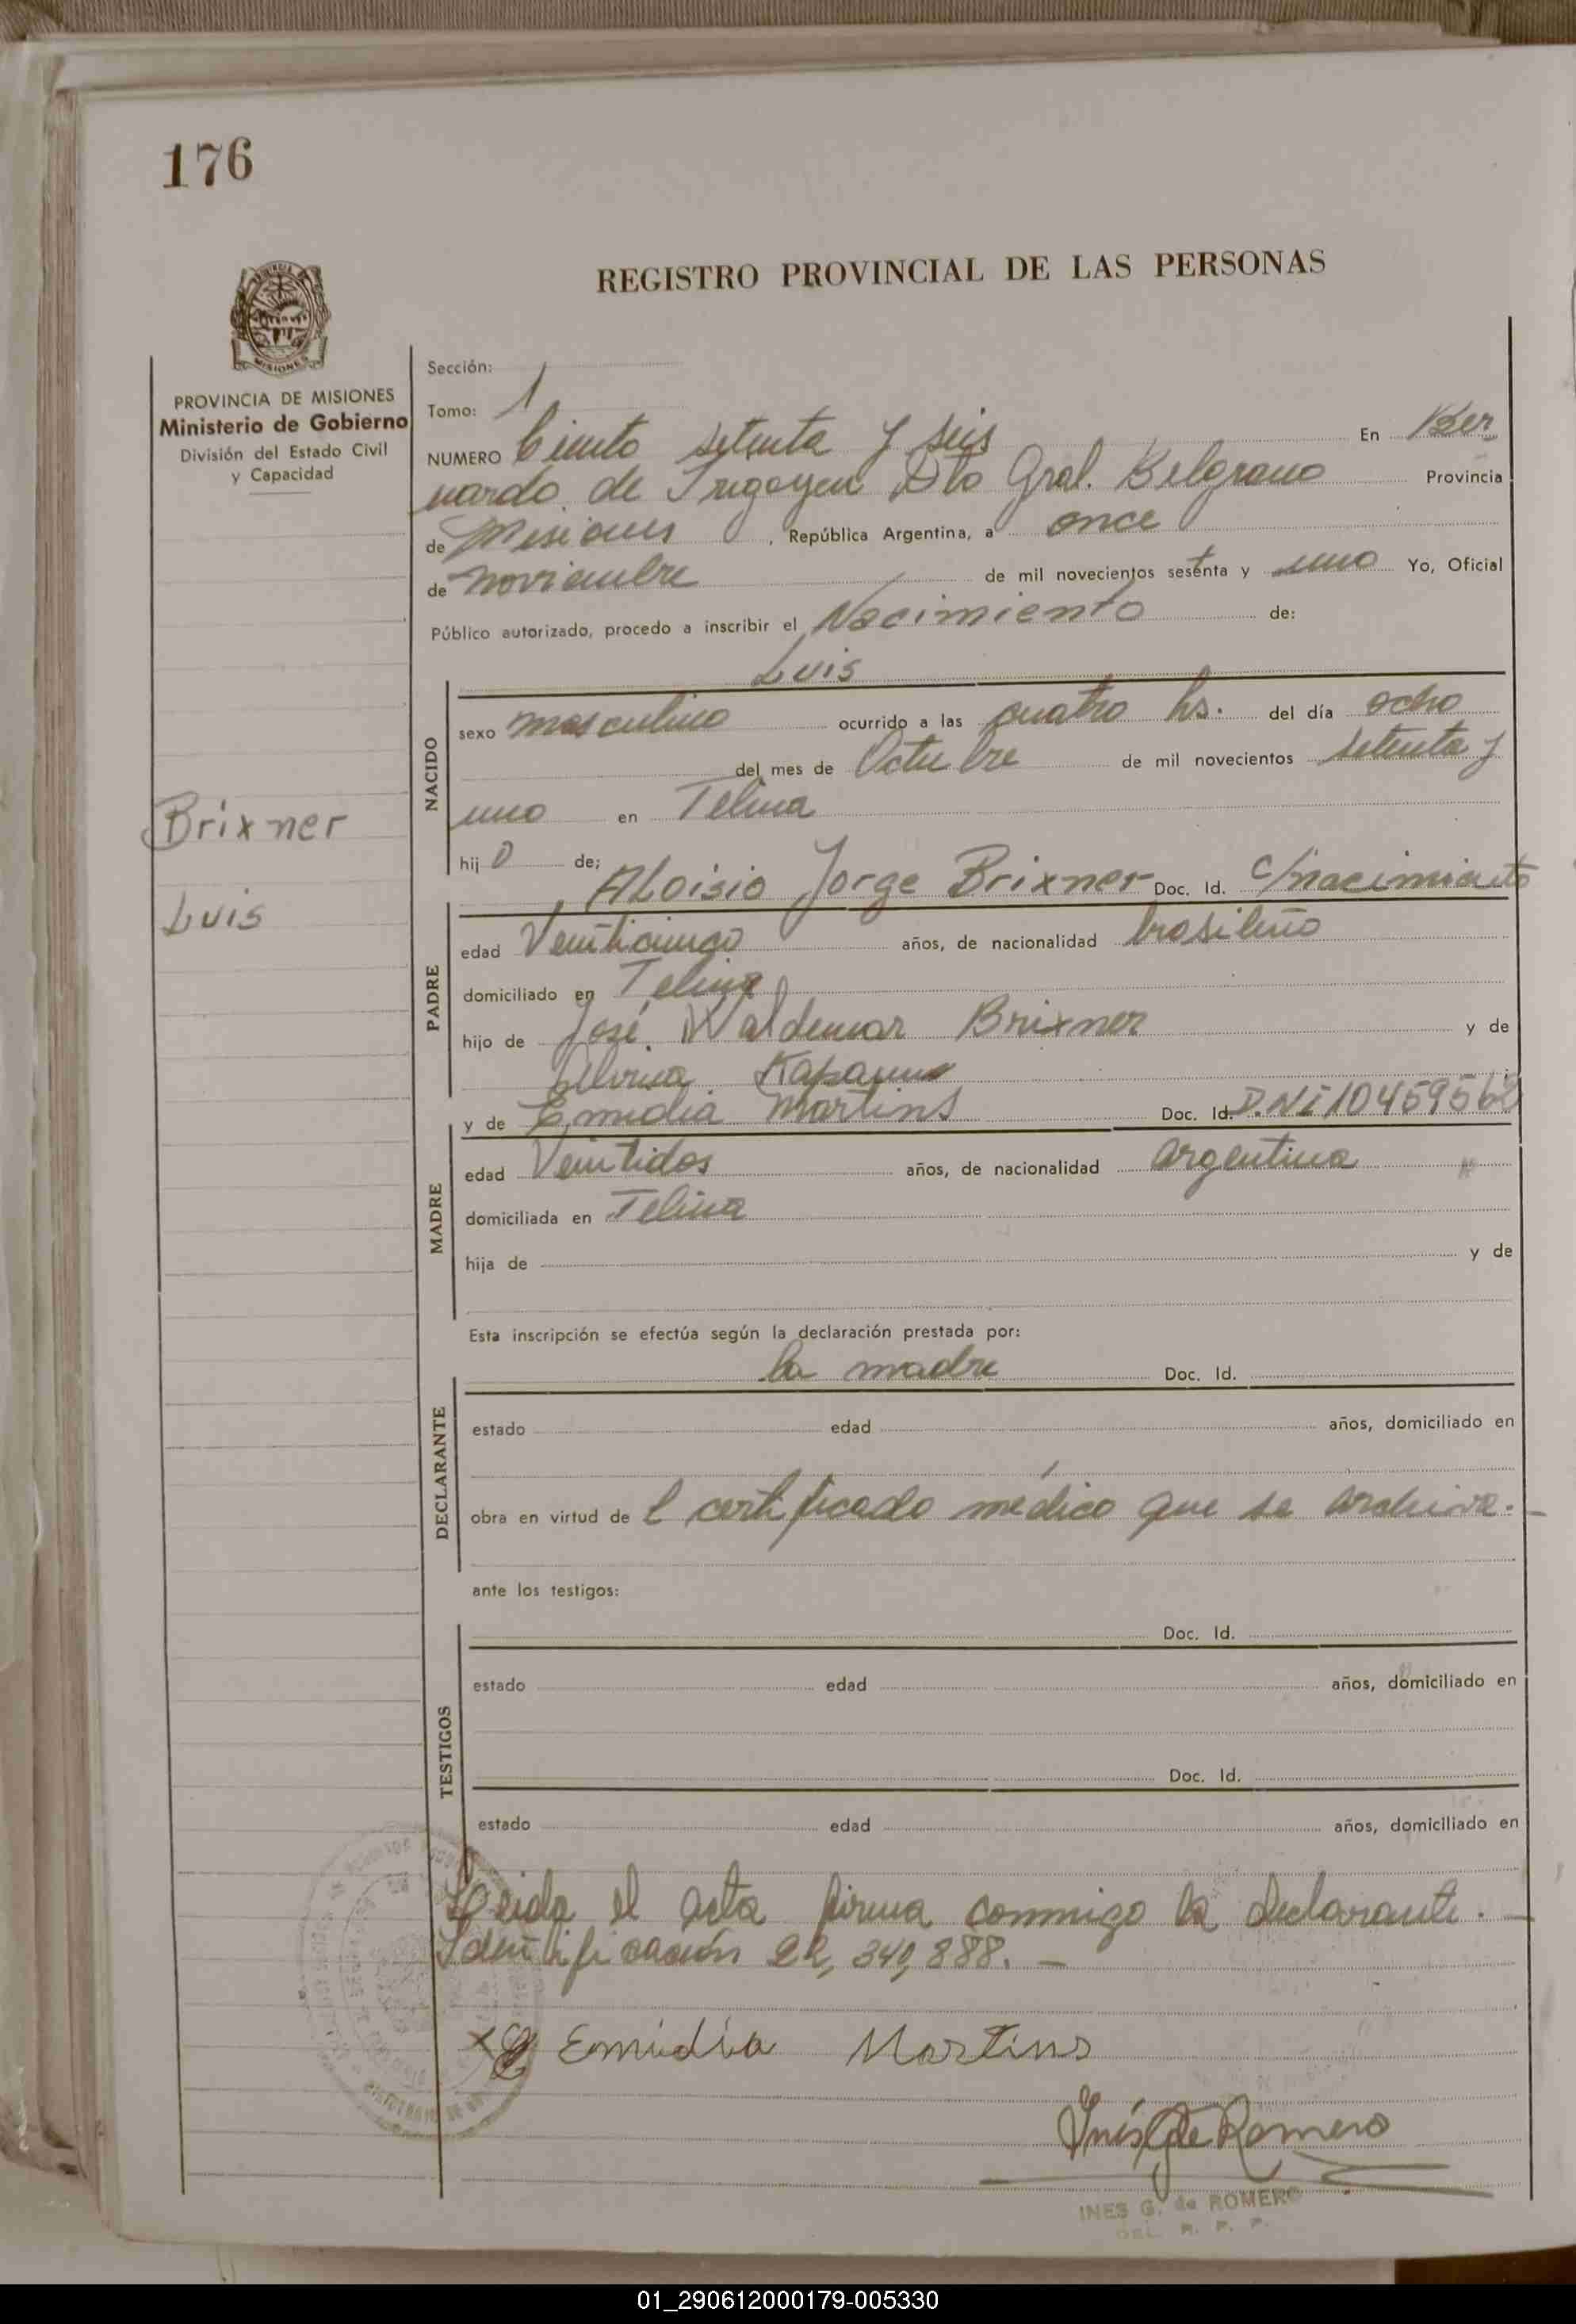 176
REGISTRO PROVINCIAL DE LAS PERSONAS
MISIONES
PROVINCIA DE MISIONES
Ministerio de Gobierno
División del Estado Civil
y Capacidad
Sección:
Tomo: 1
NUMERO Ciento setenta y seis En Ber
nardo de Irigoyen Dto Gral. Belgrano Provincia
de Misiones, República Argentina, a once
de noviembre de mil novecientos sesenta y uno Yo, Oficial
Público autorizado, procedo a inscribir el Nacimiento de:
Luis
NACIDO
sexo masculino ocurrido a las cuatro hs. del día ocho
del mes de Octubre de mil novecientos setenta y
uno en Telina
Brixner
Luis
hijo de; Aloisio Jorge Brixner Doc. Id. c/nacimiento
PADRE
edad Veinticinco años, de nacionalidad brasileño
domiciliado en Telina
hijo de José Waldemar Brixner y de
y de Emidia Martins Doc. Id. D.N.I 10459562
MADRE
edad Veintidos años, de nacionalidad argentina
domiciliada en Telina
hija de y de
Esta inscripción se efectúa según la declaración prestada por:
la madre Doc. Id.
DECLARANTE
estado edad años, domiciliado en
obra en virtud de l certificado médico que se archiva.-
ante los testigos:
Doc. Id.
TESTIGOS
estado edad años, domiciliado en
Doc. Id.
estado edad años, domiciliado en
Leida el acta firma conmigo la declarante.-
Identificación 22,340,888.-
x Emidia Martins
Inés G de Romero
INES G. de ROMERO
DEL. R. P. P.
01_290612000179-005330